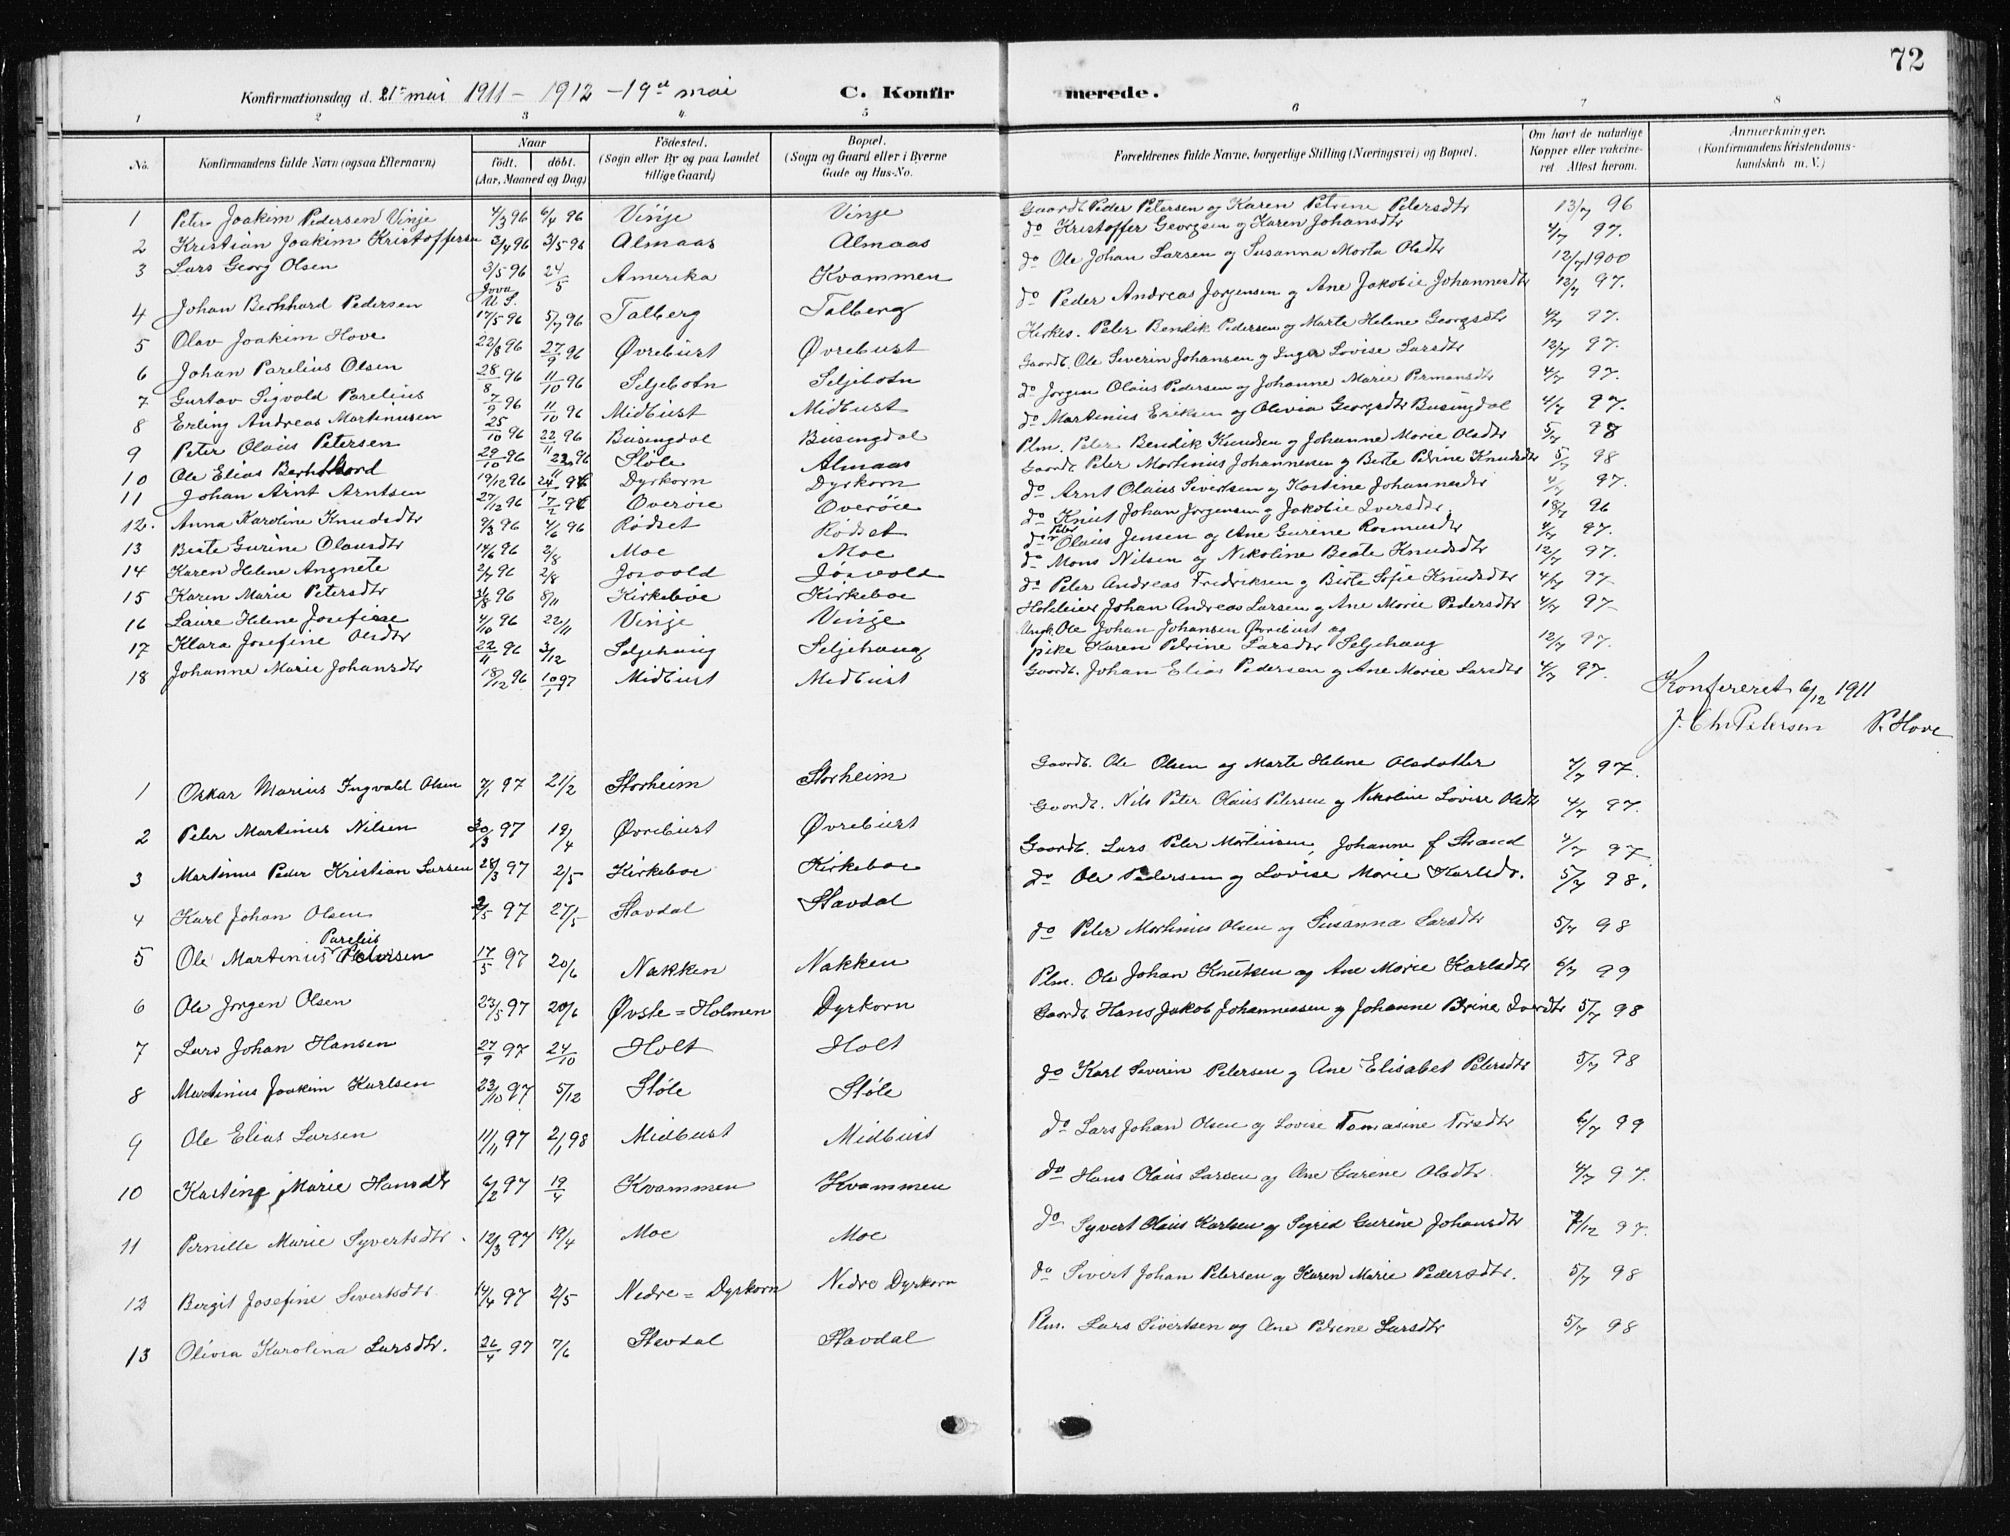 72
Konfirmationsdag d. 21de mai 1911 – 1912 – 19de mai C. Konfirmerede.
1 2 3 4 5 6 7 8
No. Konfirmandens fulde Navn (ogsaa Efternavn) Naar født. døbt. (Aar, Maaned og Dag) Fødested. (Sogn eller By og paa Landet tillige Gaard) Bopæl. (Sogn og Gaard eller i Byerne Gade og Hus-No. Forældrenes fulde Navne, borgerlige Stilling (Næringsvei) og Bopæl. Om havt de naturlige Kopper eller vakcineret Attest herom. Anmærkninger. (Konfirmandens Kristendomskundskab m. V.)
1 Peter Joakim Pedersen Vinje 4/3 96 6/4 96 Vinje Vinje Gaardb. Peder Petersen og Karen Petrine Petersdtr 13/7 96
2 Kristian Joakim Kristoffersen 3/4 96 3/5 96 Almaas Almaas do Kristoffer Georgsen og Karen Johansdtr 4/7 97.
3 Lars Georg Olsen 3/5 96 Iova U.S. 24/5 Amerika Kvammen do Ole Johan Larsen og Susanna Marta Olsdtr 12/7 1900
4 Johan Bernhard Pedersen 17/5 96 5/7 96 Talberg Talberg do Peder Andreas Jørgensen og Ane Jakobie Johannesdtr 12/7 97.
5 Olav Joakim Hove 22/8 96 27/9 96 Øvrebust Øvrebust Kirkes. Peter Bendik Pedersen og Marte Helene Georgsdtr 4/7 97.
6 Johan Parelius Olsen 28/8 96 11/10 96 Seljebotn Seljebotn Gaardb. Ole Severin Johansen og Inger Lovise Larsdtr 12/7 97.
7 Gustav Sigvald Parelius 7/9 96 11/10 96 Midbust Midbust do Jørgen Olaus Pedersen og Johanne Marie Permansdtr 4/7 97.
8 Erling Andreas Martinusen 25/10 96 22/11 96 Busengdal Busengdal do Martinus Eriksen og Olivia Georgsdtr Busingdal 4/7 97.
9 Peter Olaus Petersen 29/10 96 22/11 96 Støle Almaas Plm. Peter Bendik Knudsen og Johanne Marie Olsdtr 5/7 98
10 Ole Elias Bernhard 19/12 96 24/1 97 Dyrkorn Dyrkorn Gaardb. Peter Martinus Johannessen og Berte Petrine Knudsdtr 5/7 98
11 Johan Arnt Arntsen 27/12 96 7/2 97 Overøie Overøie do Arnt Olaus Sivertsen og Kastine Johannesdtr 4/7 97.
12. Anna Karoline Knudsdtr 9/3 96 4/6 96 Rødset Rødset do Knut Johan Jørgensen og Jakobie Iversdtr. 18/7 96
13 Beate Gurine Olausdtr 14/6 96 2/8 Moe Moe do Peter Olaus Jensen og Ane Gurine Rasmusdtr 4/7 97.
14 Karen Helene Angnete 2/7 96 2/8 Josvold Jøsvold do Mons Nilsen og Nikoline Beate Knudsdtr 12/7 97.
15 Karen Marie Petersdtr 31/8 96 8/11 Kirkeboe Kirkeboe do Peter Andreas Fredriksen og Birte Sofie Knudsdtr 4/7 97
16 Laure Helene Josefiese 4/10 96 22/11 Vinje Vinje Holdeier Johan Andreas Larsen og Ane Marie Pedersdtr 4/7 97
17 Klara Josefine Olsdtr 22/11 96 3/12 Seljehaug Seljehaug Ungk. Ole Johan Johansen Øvrebust og
pike Karen Petrine Larsdtr Seljehaug 12/7 97.
18 Johanne Marie Johansdtr 18/12 96 10/1 97 Midbust Midbust Gaardb. Johan Elias Pedersen og Ane Marie Larsdtr 4/7 97.
Konfereret 6/12 1911
J. Chr Petersen P. Hove
1 Oskar Marius Ingvald Olsen 7/1 97 21/2 Storheim Storheim Gaardb. Ole Olsen og Marte Helene Olsdatter 4/7 97.
2 Peter Martinus Nilsen 30/3 97 19/4 Øvrebust Øvrebust Gaardb. Nils Peter Olaus Petersen og Nikoline Lovise Olsdtr 4/7 97.
3 Martinus Peder Kristian Larsen 28/3 97 2/5 Kirkeboe Kirkeboe Gaardb. Lars Peter Martinusen, Johanne f Strand 4/7 97.
4 Karl Johan Olsen 2/5 97 27/5 Stavdal Stavdal do Ole Pedersen og Lovise Marie Karlsdr. 5/7 98.
5 Ole Martinus Parelius Petersen 17/5 97 20/6 Nakken Nakken do Peter Martinus Olsen og Susanna Larsdtr 5/7 98
6 Ole Jørgen Olsen 23/5 97 20/6 Øvste = Holmen Dyrkorn Plm. Ole Johan Knutsen og Ane Marie Karlsdtr 6/7 99
7 Lars Johan Hansen 27/9 97 24/10 Holt Holt Gaardb. Hans Jakob Johannessen og Johanne Birine Iversdtr 5/7 98
8 Martinus Joakim Karlsen 23/10 97 5/12 Støle Støle do Karl Severin Petersen og Ane Elisabet Petersdtr 5/7 98
9 Ole Elias Larsen 11/11 97 2/1 98 Midbust Midbust do Lars Johan Olsen og Lovise Tomasine Torsdtr 6/7 99
10 Kastine Marie Hansdtr 6/2 97 19/4 Kvammen Kvammen do Hans Olaus Larsen og Ane Gurine Olsdtr. 4/7 97.
11 Pernille Marie Syvertsdtr. 12/3 97 19/4 Moe Moe do Syvert Olaus Karlsen og Sigrid Gurine Johansdtr 7/12 97.
12 Bergit Josefine Sivertsdtr. 14/4 97 2/5 Nedre = Dyrkorn Nedre Dyrkorn do Sivert Johan Petersen og Karen Marie Pedersdtr. 5/7 98
13 Olivia Karolina Larsdtr. 26/4 97 7/6 Stavdal Stavdal Plm. Lars Sivertsen og Ane Petrine Larsdtr 5/7 98